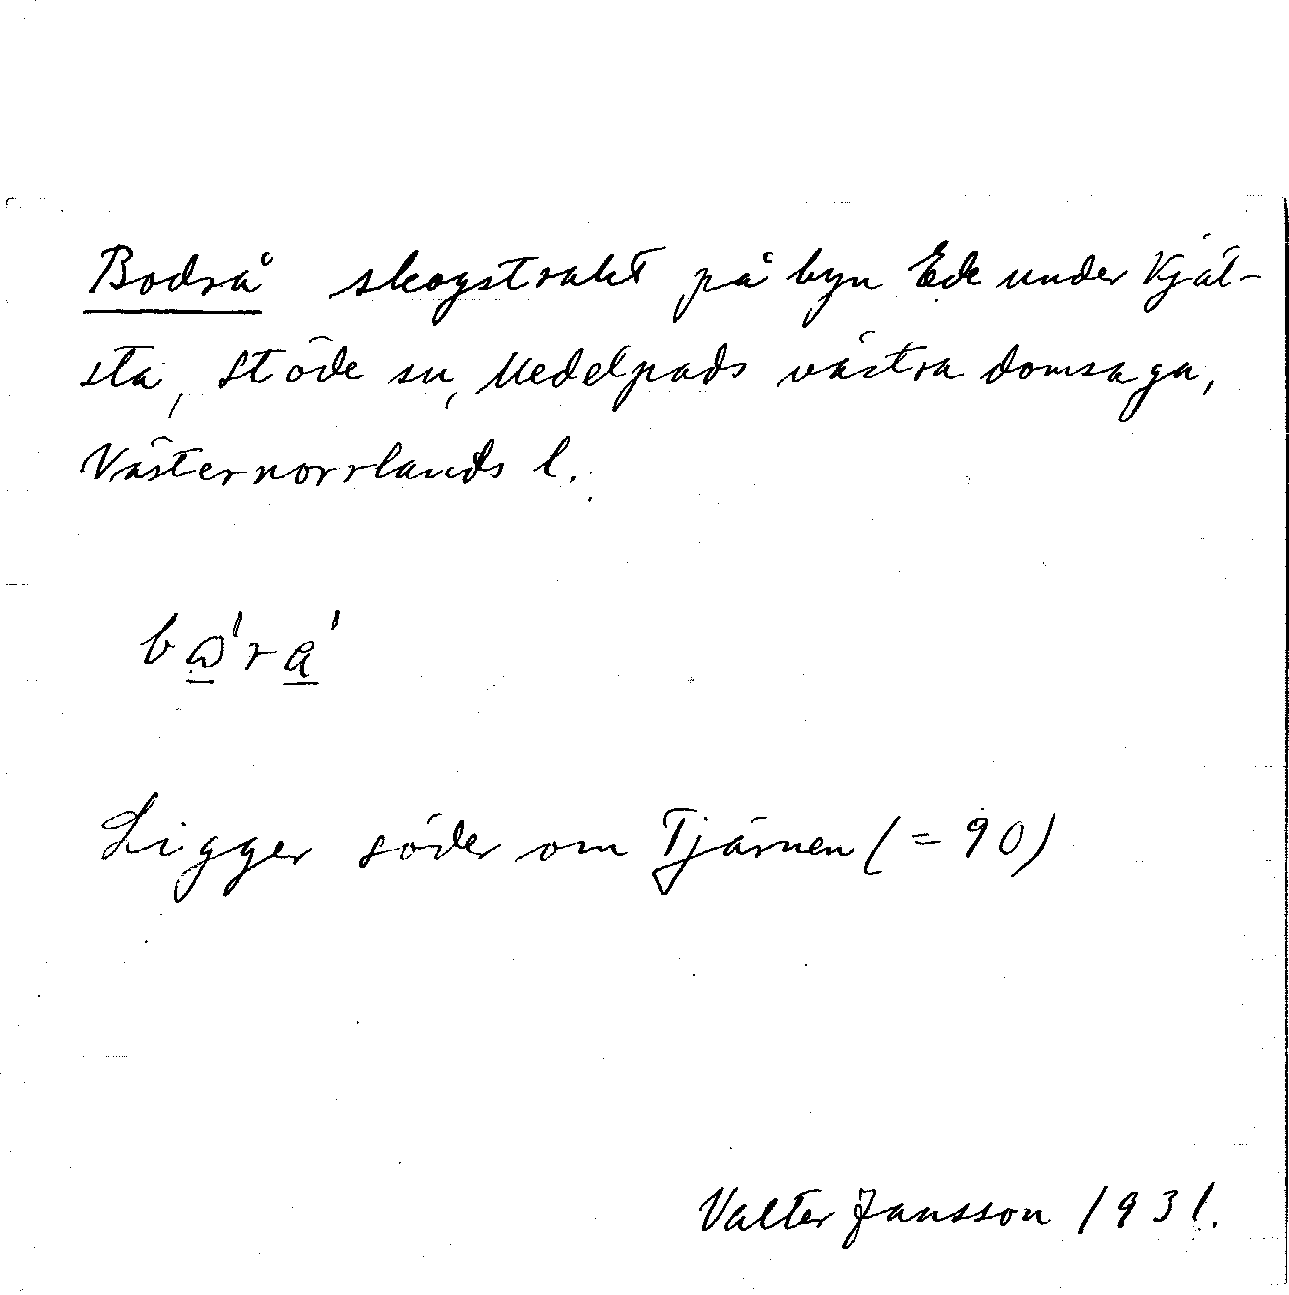 Bodrå skogstrakt på byn Ede under Kjäl-
sta, Stöde sn, Medelpads västra domsaga,
Västernorrlands l.
Ligger söder om Tjärnen (= 90)
Valter Jansson 1931.